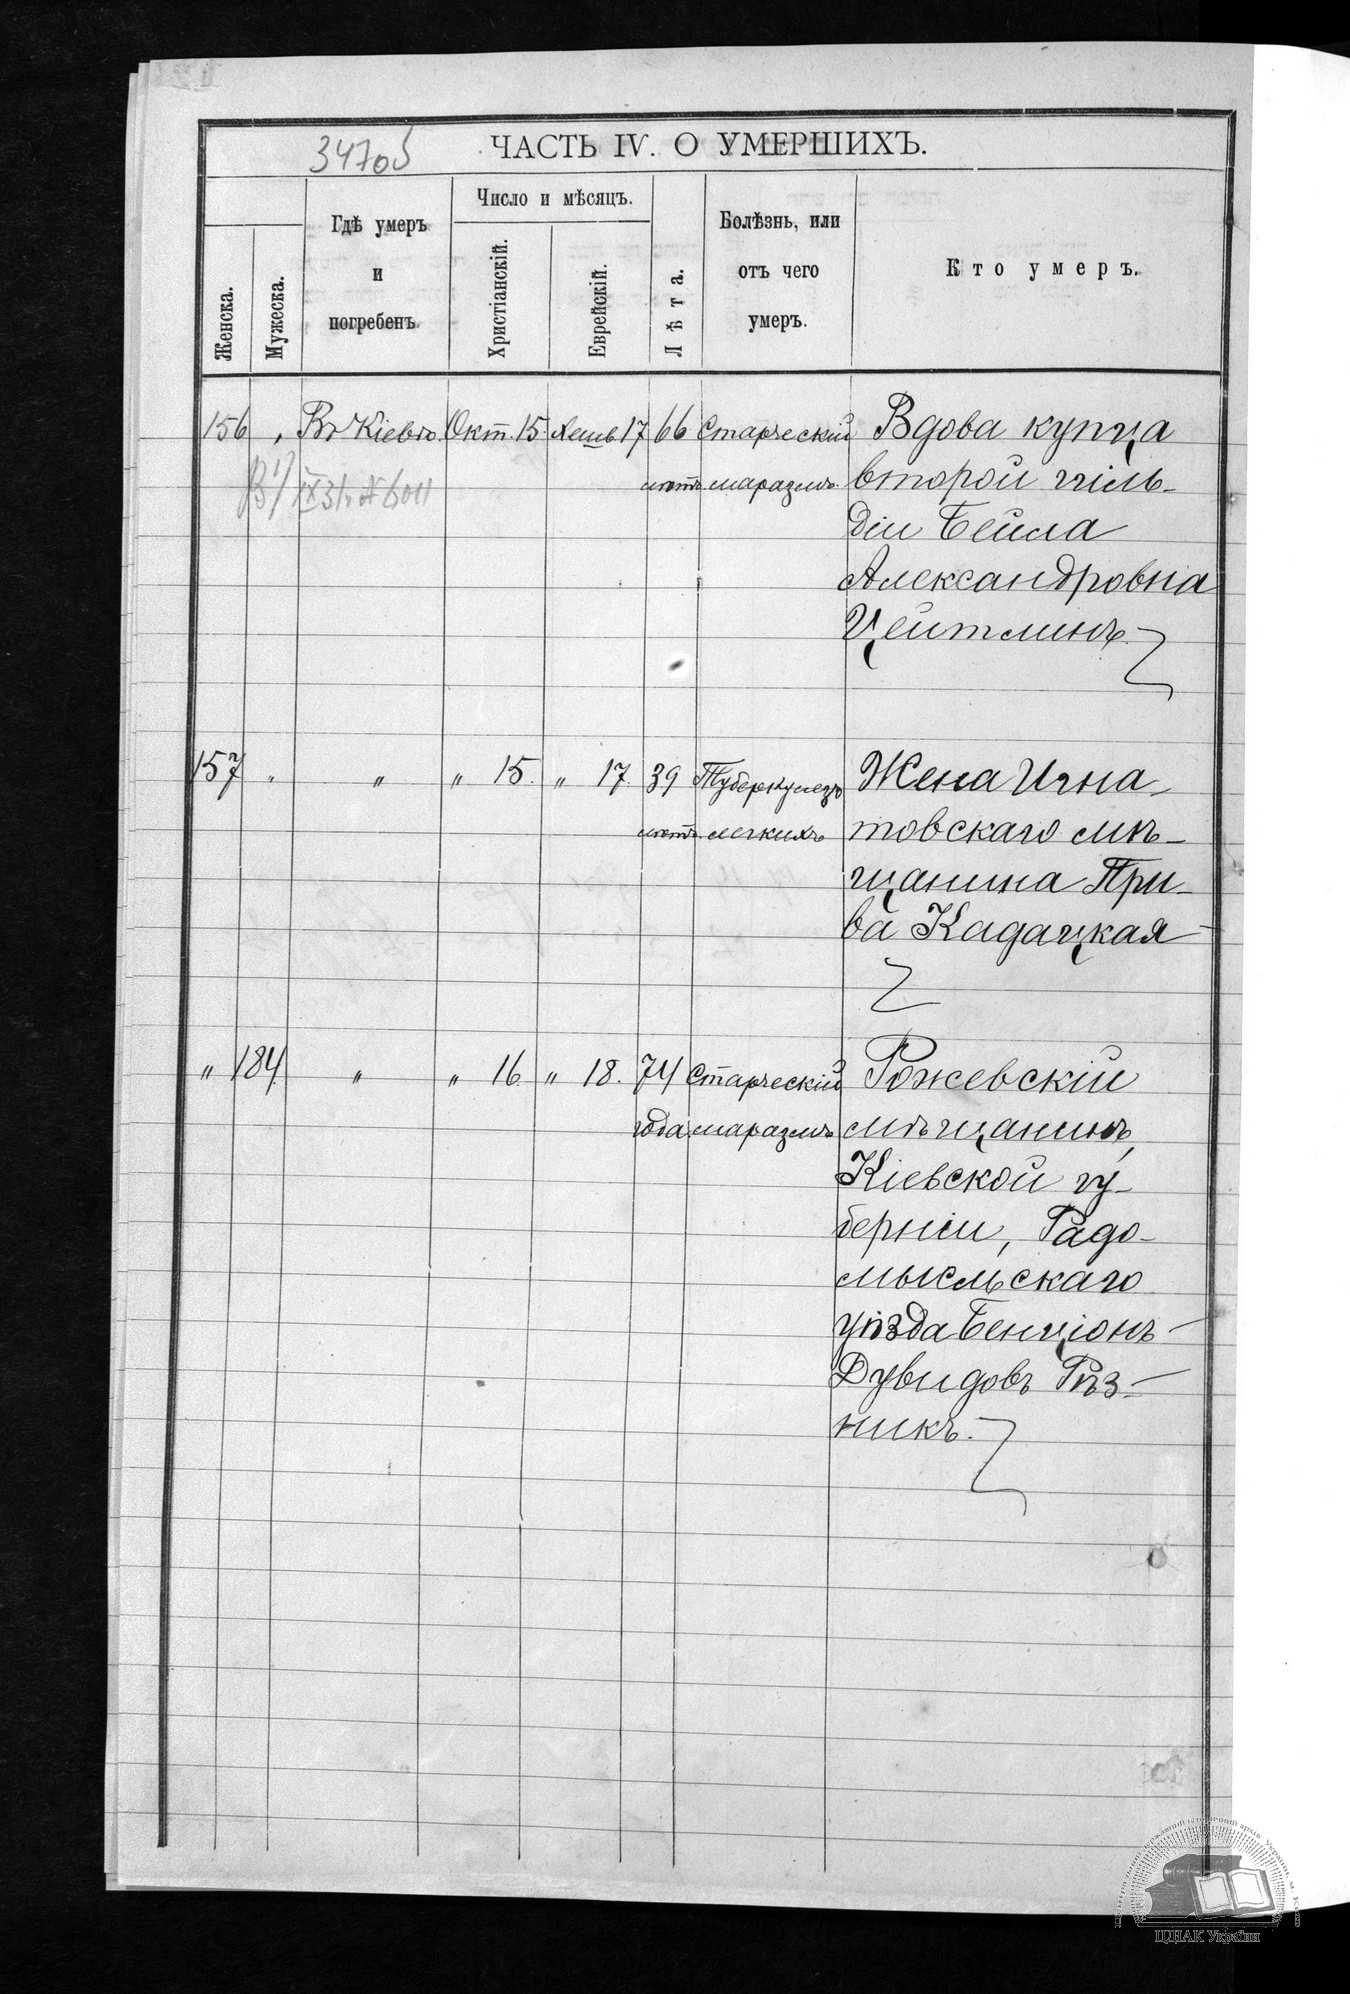 347об
ЧАСТЬ IV. О УМЕРШИХЪ.
Женска.
Мужеска.
Гдѣ умеръ
и
погребенъ
Число и мѣсяцъ.
Христіанскій.
Еврейскій.
Лѣта.
Болѣзнь, или
отъ чего
умеръ.
Кто умеръ.
156 „ Въ Кіевѣ Окт. 15. Хешв. 17 66 Старческій Вдова купца
лѣтъ маразмъ. второй гиль-
діи Бейла
Александровна
Цейтлинъ.
157 „ „ „ 15. „ 17. 39 Туберкулезъ Жена Игна-
лѣтъ легкихъ товскаго мѣ-
щанина При-
ва Кадацкая
„ 184 „ „ 16. „ 18. 74 Старческій Рожевскій
года маразмъ мѣщанинъ,
Кіевской гу-
берніи, Радо-
мысльскаго
уѣзда Бенціонъ
Дувидовъ Рѣз-
никъ.
ЦДІАК України